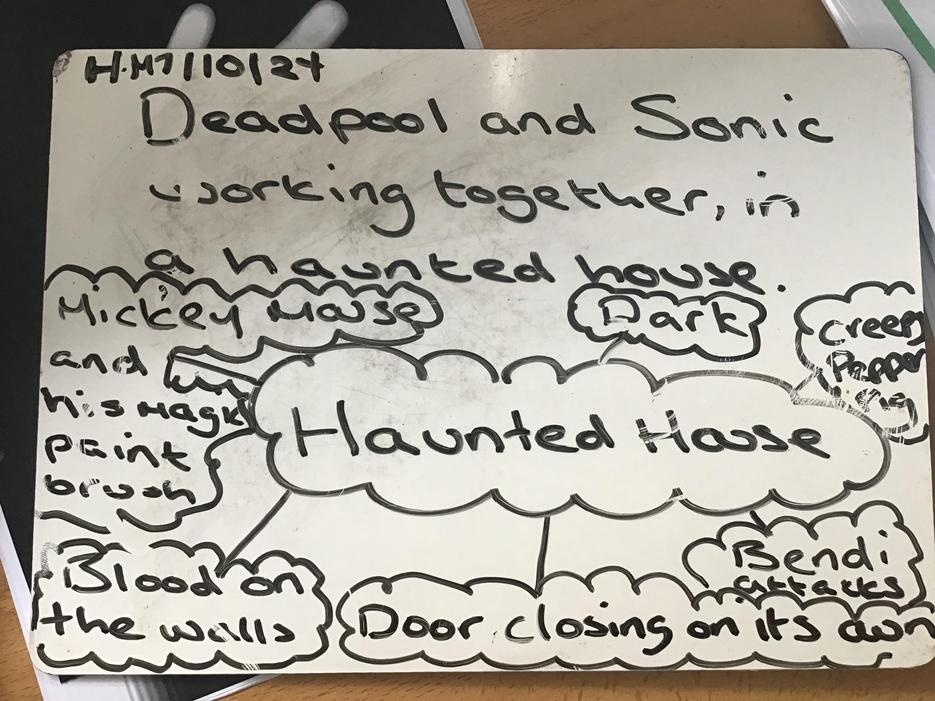 H.M 7/10/24
Deadpool and Sonic
working together, in
a haunted house.
Mickey Mouse
and
his Magic
Paint
brush
Dark
Creepy
Pepper
Pig
Haunted House
Blood on
the walls
Door closing on its own
Bendi
attacks